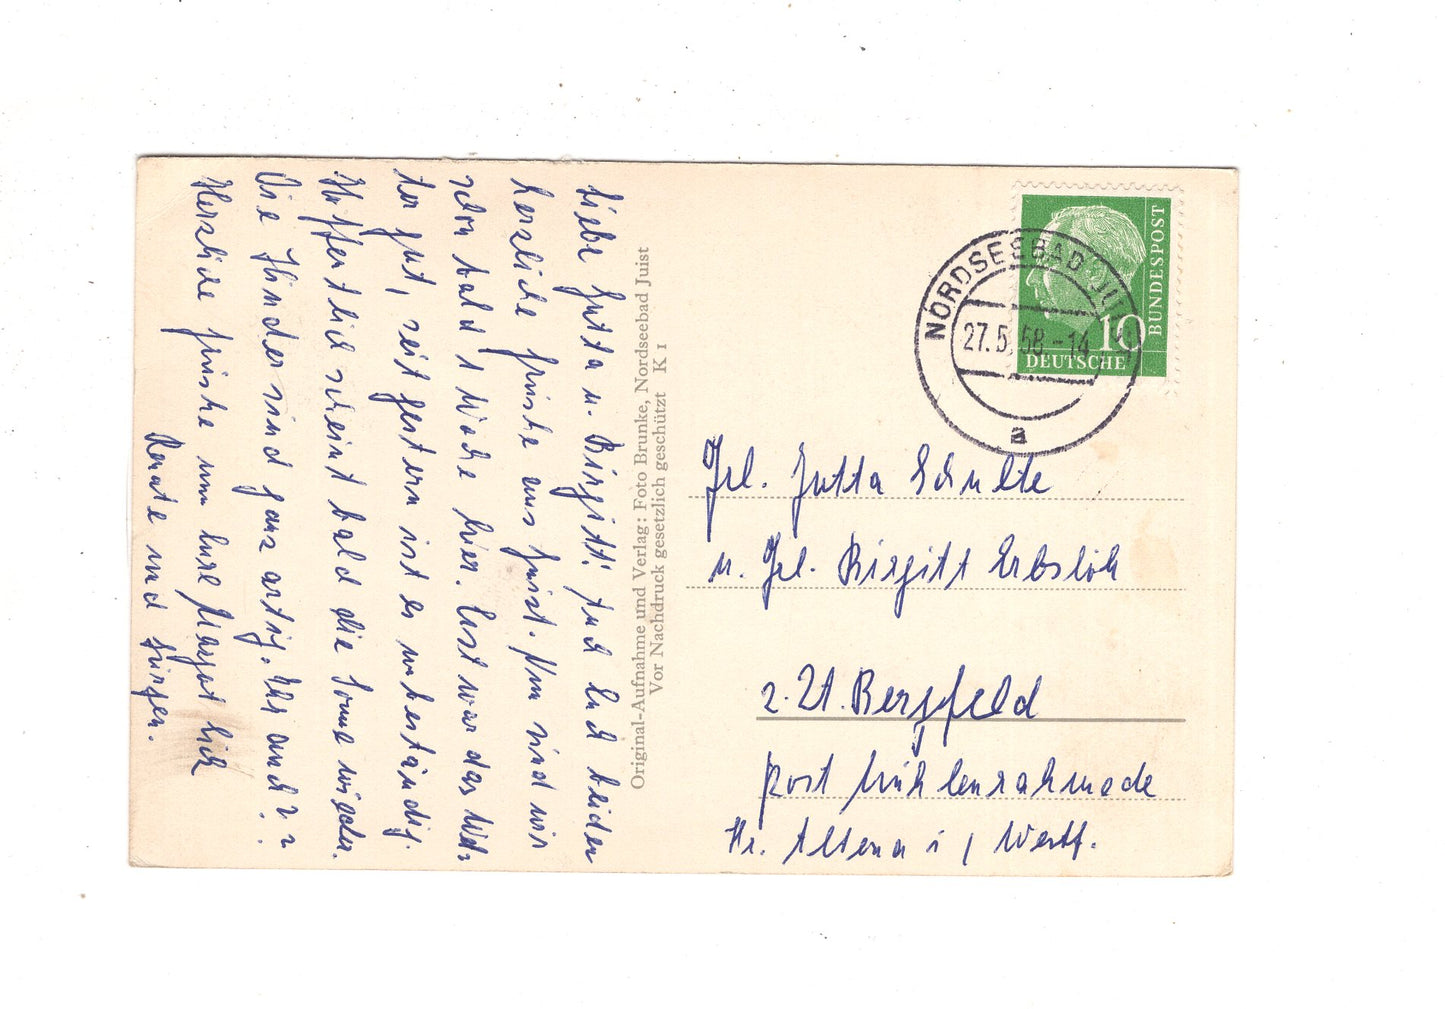 Liebe Jutta u. Birgitt! Euch beiden
herzliche Grüße aus Juist. Nun sind wir
schon bald 1 Woche hier. Erst war das Wet-
ter gut, seit gestern ist es unbeständig.
Hoffentlich scheint bald die Sonne wieder.
Die Kinder sind ganz artig. Ihr auch??
Herzliche Grüße von Eure Margot
Renate und Jürgen.
Original-Aufnahme und Verlag: Foto Brunke, Nordseebad Juist
Vor Nachdruck gesetzlich geschützt K 1
NORDSEEBAD JUIST
27.5.58-14
a
10
DEUTSCHE
BUNDESPOST
Frl. Jutta Schulte
u. Frl. Birgitt Erbslöh
z. Zt. Bergfeld
Post Mühlenrahmede
Kr. Altena i/Westf.